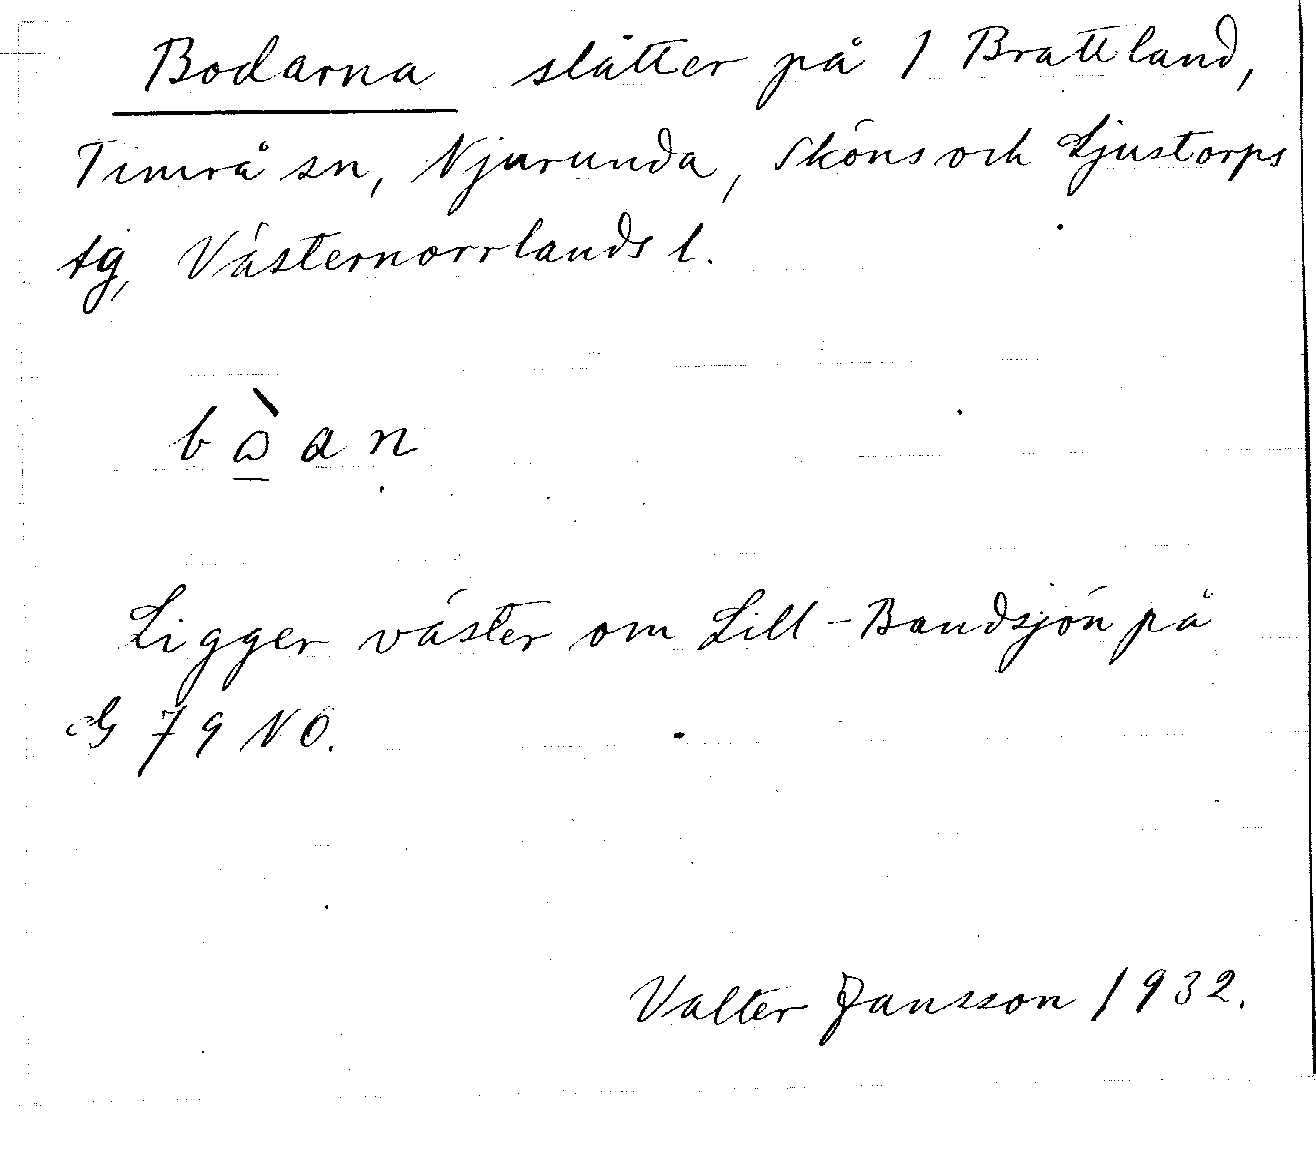 Bodarna slåtter på 1 Brattland,
Timrå sn, Njurunda, Sköns och Ljustorps
tg, Västernorrlands l.
bὼan
Ligger väster om Lill-Bandsjön på
G 79 NO.
Valter Jansson 1932.